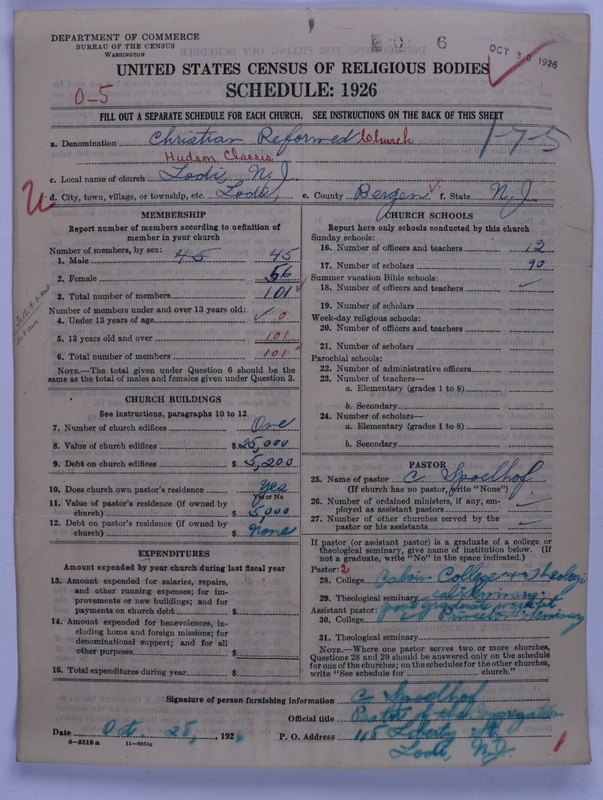 DEPARTMENT OF COMMERCE
BUREAU OF THE CENSUS
WASHINGTON
6
OCT 30 1926
UNITED STATES CENSUS OF RELIGIOUS BODIES
SCHEDULE: 1926
0-5
FILL OUT A SEPARATE SCHEDULE FOR EACH CHURCH. SEE INSTRUCTIONS ON THE BACK OF THIS SHEET
a. Denomination Christian Reformed Church
1-7-5
Hudson Classis
c. Local name of church Lodi, N.J.
d. City, town, village, or township, etc. Lodi, e. County Bergen f. State N.J.
MEMBERSHIP
Report number of members according to definition of member in your church
Number of members, by sex: 45
1. Male 45
2. Female 56
3. Total number of members 101
Number of members under and over 13 years old:
4. Under 13 years of age 0
5. 13 years old and over 101
6. Total number of members 101
NOTE.—The total given under Question 6 should be the same as the total of males and females given under Question 3.
CHURCH BUILDINGS
See instructions, paragraphs 10 to 12
7. Number of church edifices One
8. Value of church edifices $25,000
9. Debt on church edifices $5,200
10. Does church own pastor's residence Yes
Yes or No
11. Value of pastor's residence (if owned by church) $5,000
12. Debt on pastor's residence (if owned by church) $ None
EXPENDITURES
Amount expended by your church during last fiscal year
13. Amount expended for salaries, repairs, and other running expenses; for improvements or new buildings; and for payments on church debt $
14. Amount expended for benevolences, including home and foreign missions; for denominational support; and for all other purposes $
15. Total expenditures during year $
CHURCH SCHOOLS
Report here only schools conducted by this church
Sunday schools:
16. Number of officers and teachers 12
17. Number of scholars 90
Summer vacation Bible schools:
18. Number of officers and teachers
19. Number of scholars
Week-day religious schools:
20. Number of officers and teachers
21. Number of scholars
Parochial schools:
22. Number of administrative officers
23. Number of teachers—
a. Elementary (grades 1 to 8)
b. Secondary
24. Number of scholars—
a. Elementary (grades 1 to 8)
b. Secondary
PASTOR
25. Name of pastor C. Spoelhof
(If church has no pastor, write "None")
26. Number of ordained ministers, if any, employed as assistant pastors
27. Number of other churches served by the pastor or his assistants
If pastor (or assistant pastor) is a graduate of a college or theological seminary, give name of institution below. (If not a graduate, write "No" in the space indicated.)
Pastor: 2
28. College Calvin College Theological
29. Theological seminary Seminary
Assistant pastor: post graduate work at
30. College Princeton Seminary
31. Theological seminary
NOTE.—Where one pastor serves two or more churches, Questions 28 and 29 should be answered only on the schedule for one of the churches; on the schedules for the other churches, write "See schedule for church."
Signature of person furnishing information C Spoelhof
Official title Pastor of the congregation
Date Oct. 25, 1926 P. O. Address 115 Liberty St.
Lodi, N.J.
8-5518 a